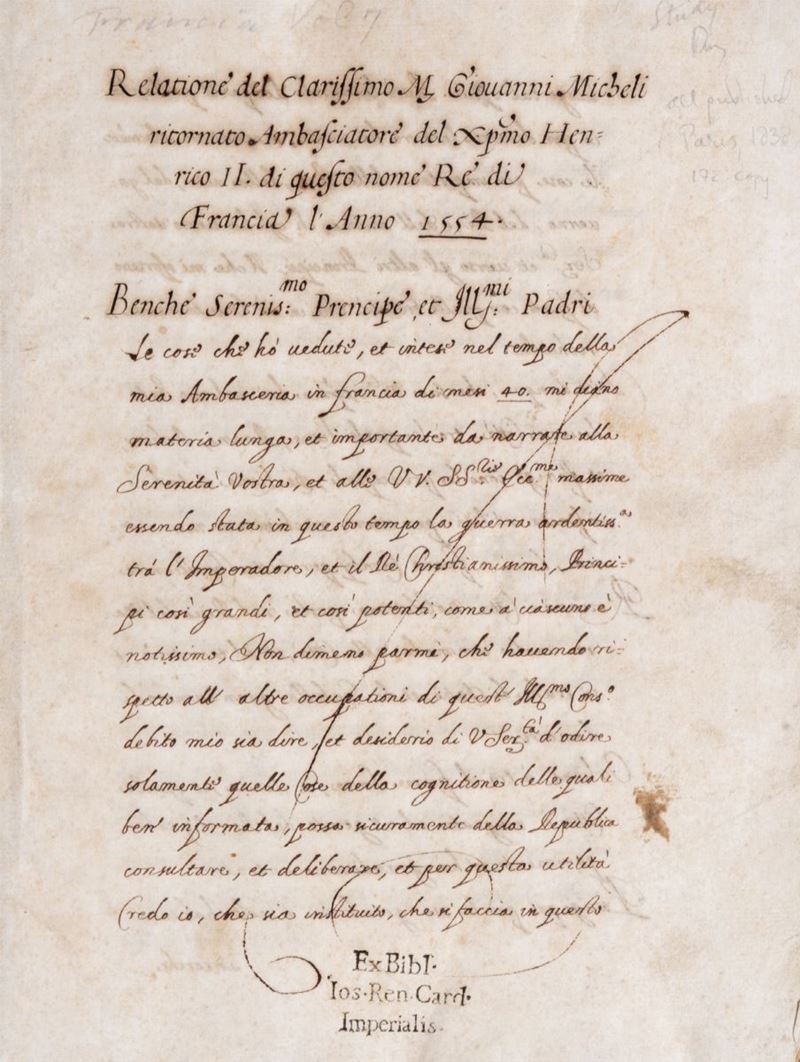 Francia Vol 7
Study
not published
Paris 1838
172 copy
Relatione del Clarissimo M. Giovanni Micheli
ritornato Ambasciatore del Xp̃mo Hen=
rico II. di questo nome Re di
Francia l'Anno 1554.
Benche Serenis:mo Prencipe et Ill:mi Padri
Le cose che hò uedute, et intese nel tempo della
mia Ambasceria in francia di mesi 40. mi
materia lunga, et importante da narrare alla
Serenità Vostra, et alle VV. SS.rie Ecc.me massime
essendo stata in questo tempo la guerra ardentiss.a
trà l'Imperadore, et il Rè Christianissimo, Princi=
pi così grandi, et così potenti, come a ciascuno è
notissimo, Non dimeno parmi, che hauendo ri=
spetto all' altre occupationi di quest' Ill.mo Cons.o
debito mio sia dire, et desiderio di V Ser.tà d'odire
solamente quelle Cose della cognitione delle quali
ben' informata, possa sicuramente della Republica
consultare, et deliberare, et per questa utilità
Credo io, che sia instituito, che si faccia in questo
Ex Bibl.
Ios. Ren. Card.
Imperialis.